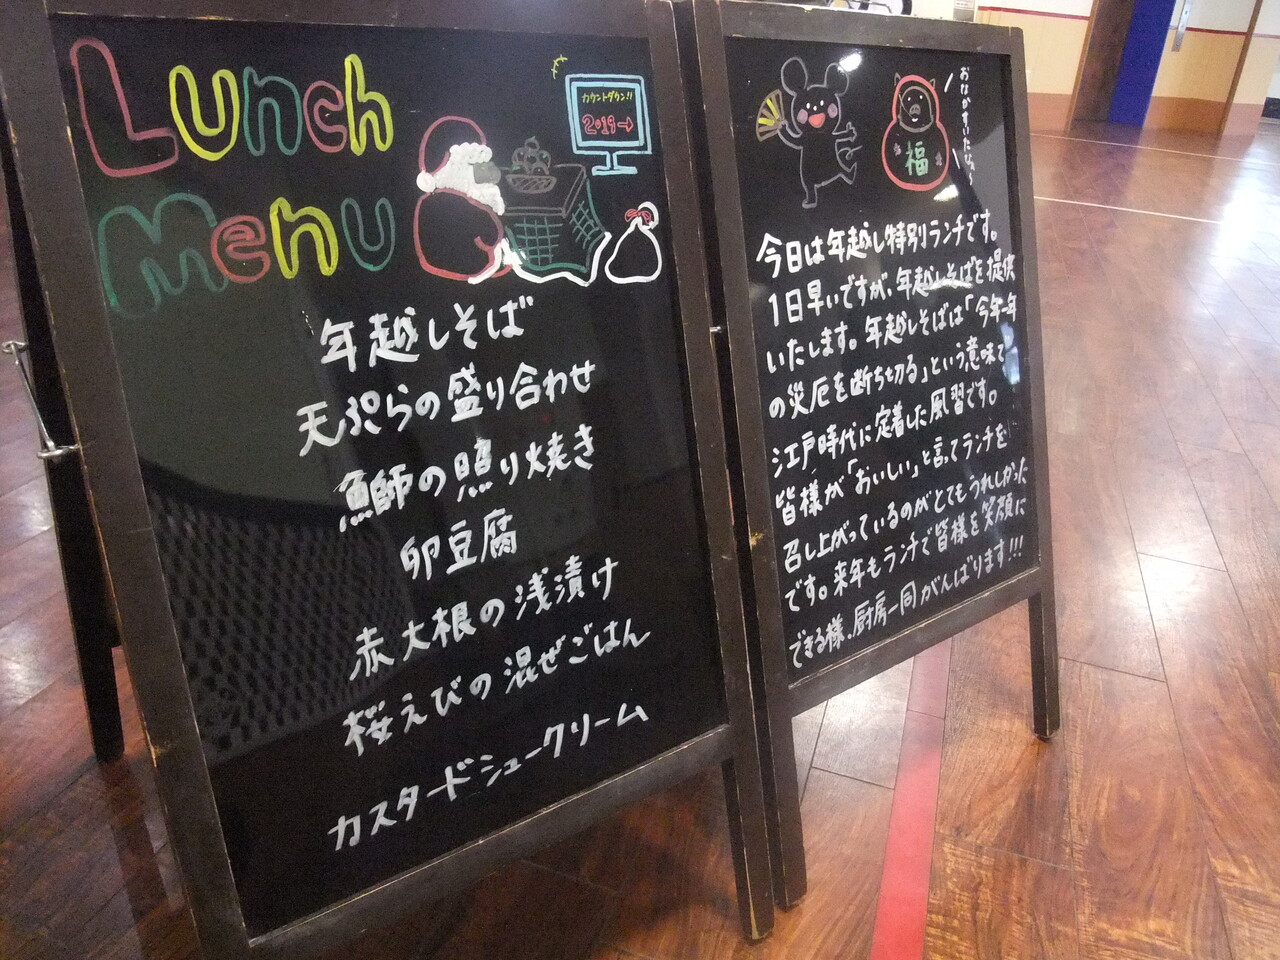 Lunch
Menu
カウントダウン!!
2019→
年越しそば
天ぷらの盛り合わせ
鰤の照り焼き
卵豆腐
赤大根の浅漬け
桜えびの混ぜごはん
カスタードシュークリーム
福
おなかすいたなぁ
今日は年越し特別ランチです。
1日早いですが、年越しそばを提供
いたします。年越しそばは「今年一年
の災厄を断ち切る」という意味で
江戸時代に定着した風習です。
皆様が「おいしい」と言ってランチを
召し上がっているのがとてもうれしかった
です。来年もランチで皆様を笑顔に
できる様、厨房一同がんばります!!!